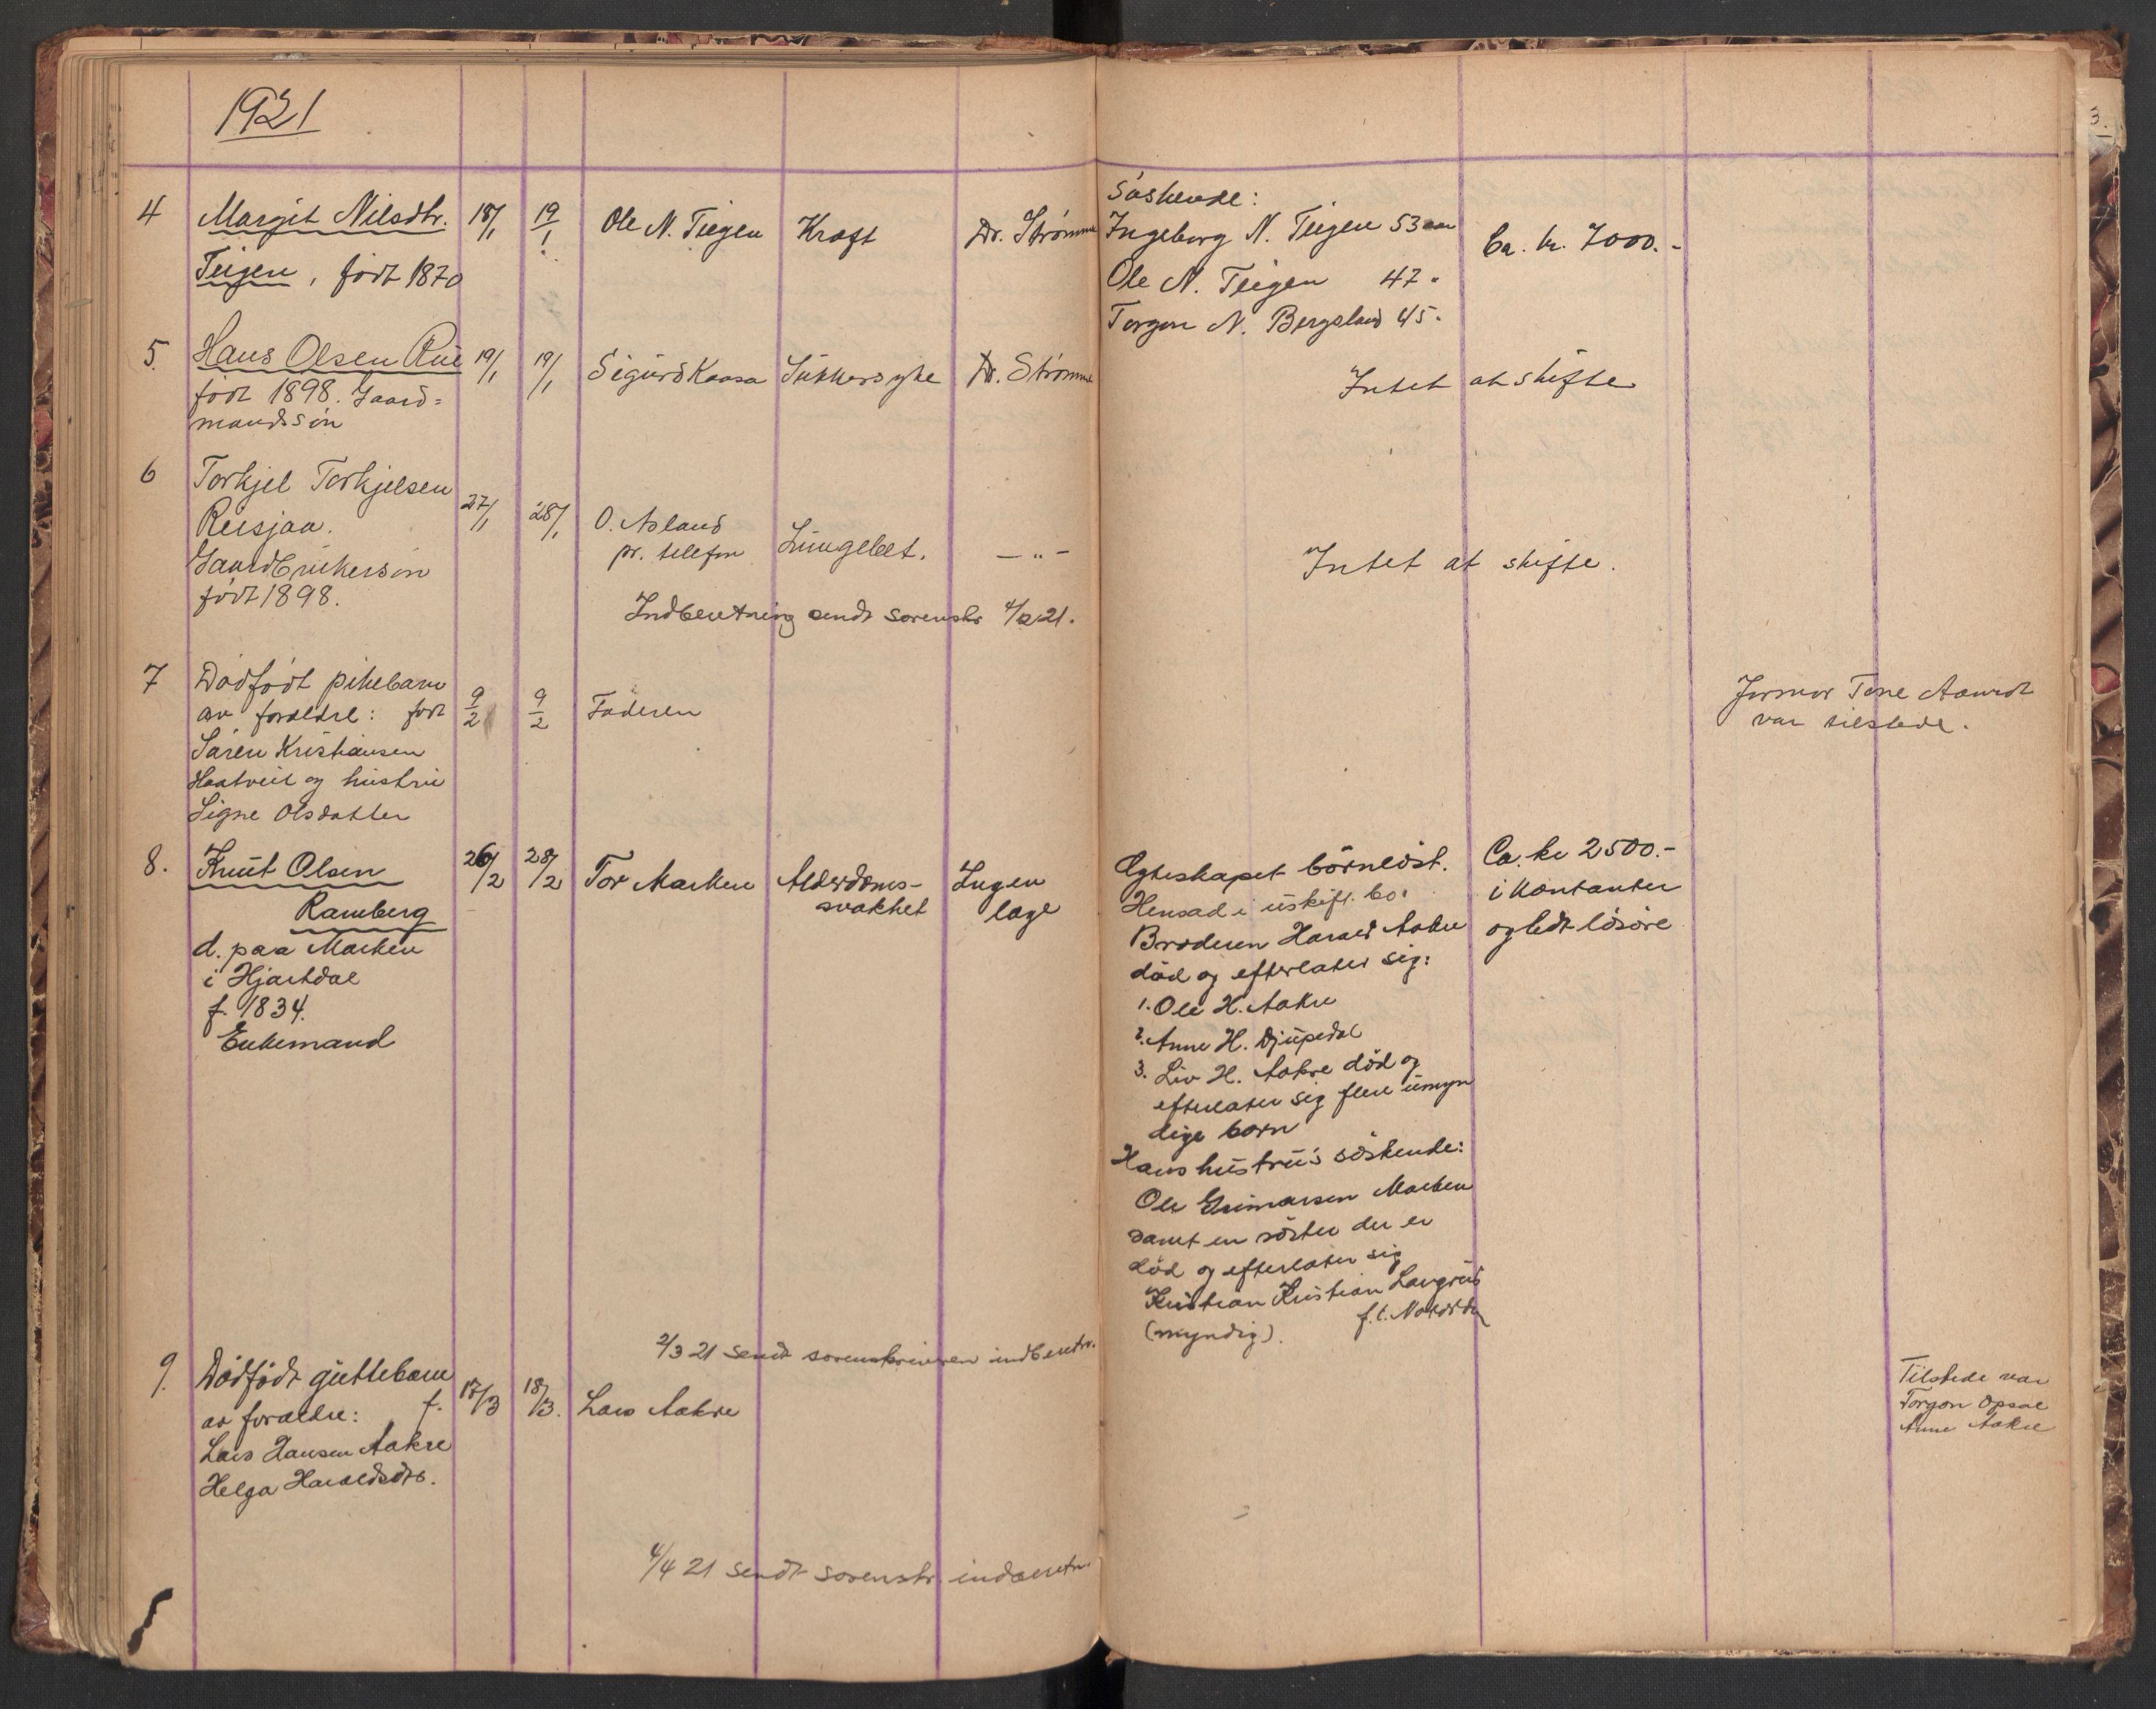 1921
3.
4 Margit Nilsdtr. 18/1 19/1 Ole N. Teigen Kræft Dr. Strømme
Teigen, født 1870
Søskende:
Ingeborg N. Teigen 53 aar Ca. kr. 7000.-
Ole N. Teigen 47 "
Torgon N. Bergsland 45 "
5. Hans Olsen Rue 19/1 19/1 Sigurd Kaasa Sukkersyke Dr. Strømme Intet at skifte
født 1898. Gaard=
mandssøn
6 Torkjel Torkjelsen
Reisjaa. 27/1 28/1 O. Asland
pr. telefon Lungebet. — " — Intet at skifte.
Gaardbrukersøn
født 1898.
Indberetning sendt sorenskr 4/2 21.
7 Dødfødt pikebarn
av forældre: født 9/2 9/2 Faderen
Søren Kristiansen
Haatveit og hustru
Signe Olsdatter
Jormor Tone Aamodt
var tilstede.
8. Knut Olsen 26/2 28/2 Tor Marken Alderdoms-
svakhet Ingen
læge
Ramberg
d. paa Marken
i Hjartdal
f. 1834.
Enkemand
Ægteskapet børnløst. Ca. kr 2500.-
Hensad i uskift. bo. i kontanter
Broderen Harald Aakre og lidt løsøre
død og efterlater sig:
1. Ole H. Aakre
2. Anne H. Djupedal
3. Liv H. Aakre død og
efterlater sig flere umyn
dige børn
Hans hustru's søskende:
Ole Gunnarsen Marken
samt en søster der er
død og efterlater sig
Kristian Kristian Langrud
(myndig). f. t. Notodden
2/3 21 sendt sorenskriveren indberetn.
9. Dødfødt guttebarn
av forældre: f. 17/3 18/3. Lars Aakre
Lars Hansen Aakre
Helga Haraldsdtr.
Tilstede var
Torgon Opsal
Anne Aakre
4/4 21 sendt sorenskr. indberetn.